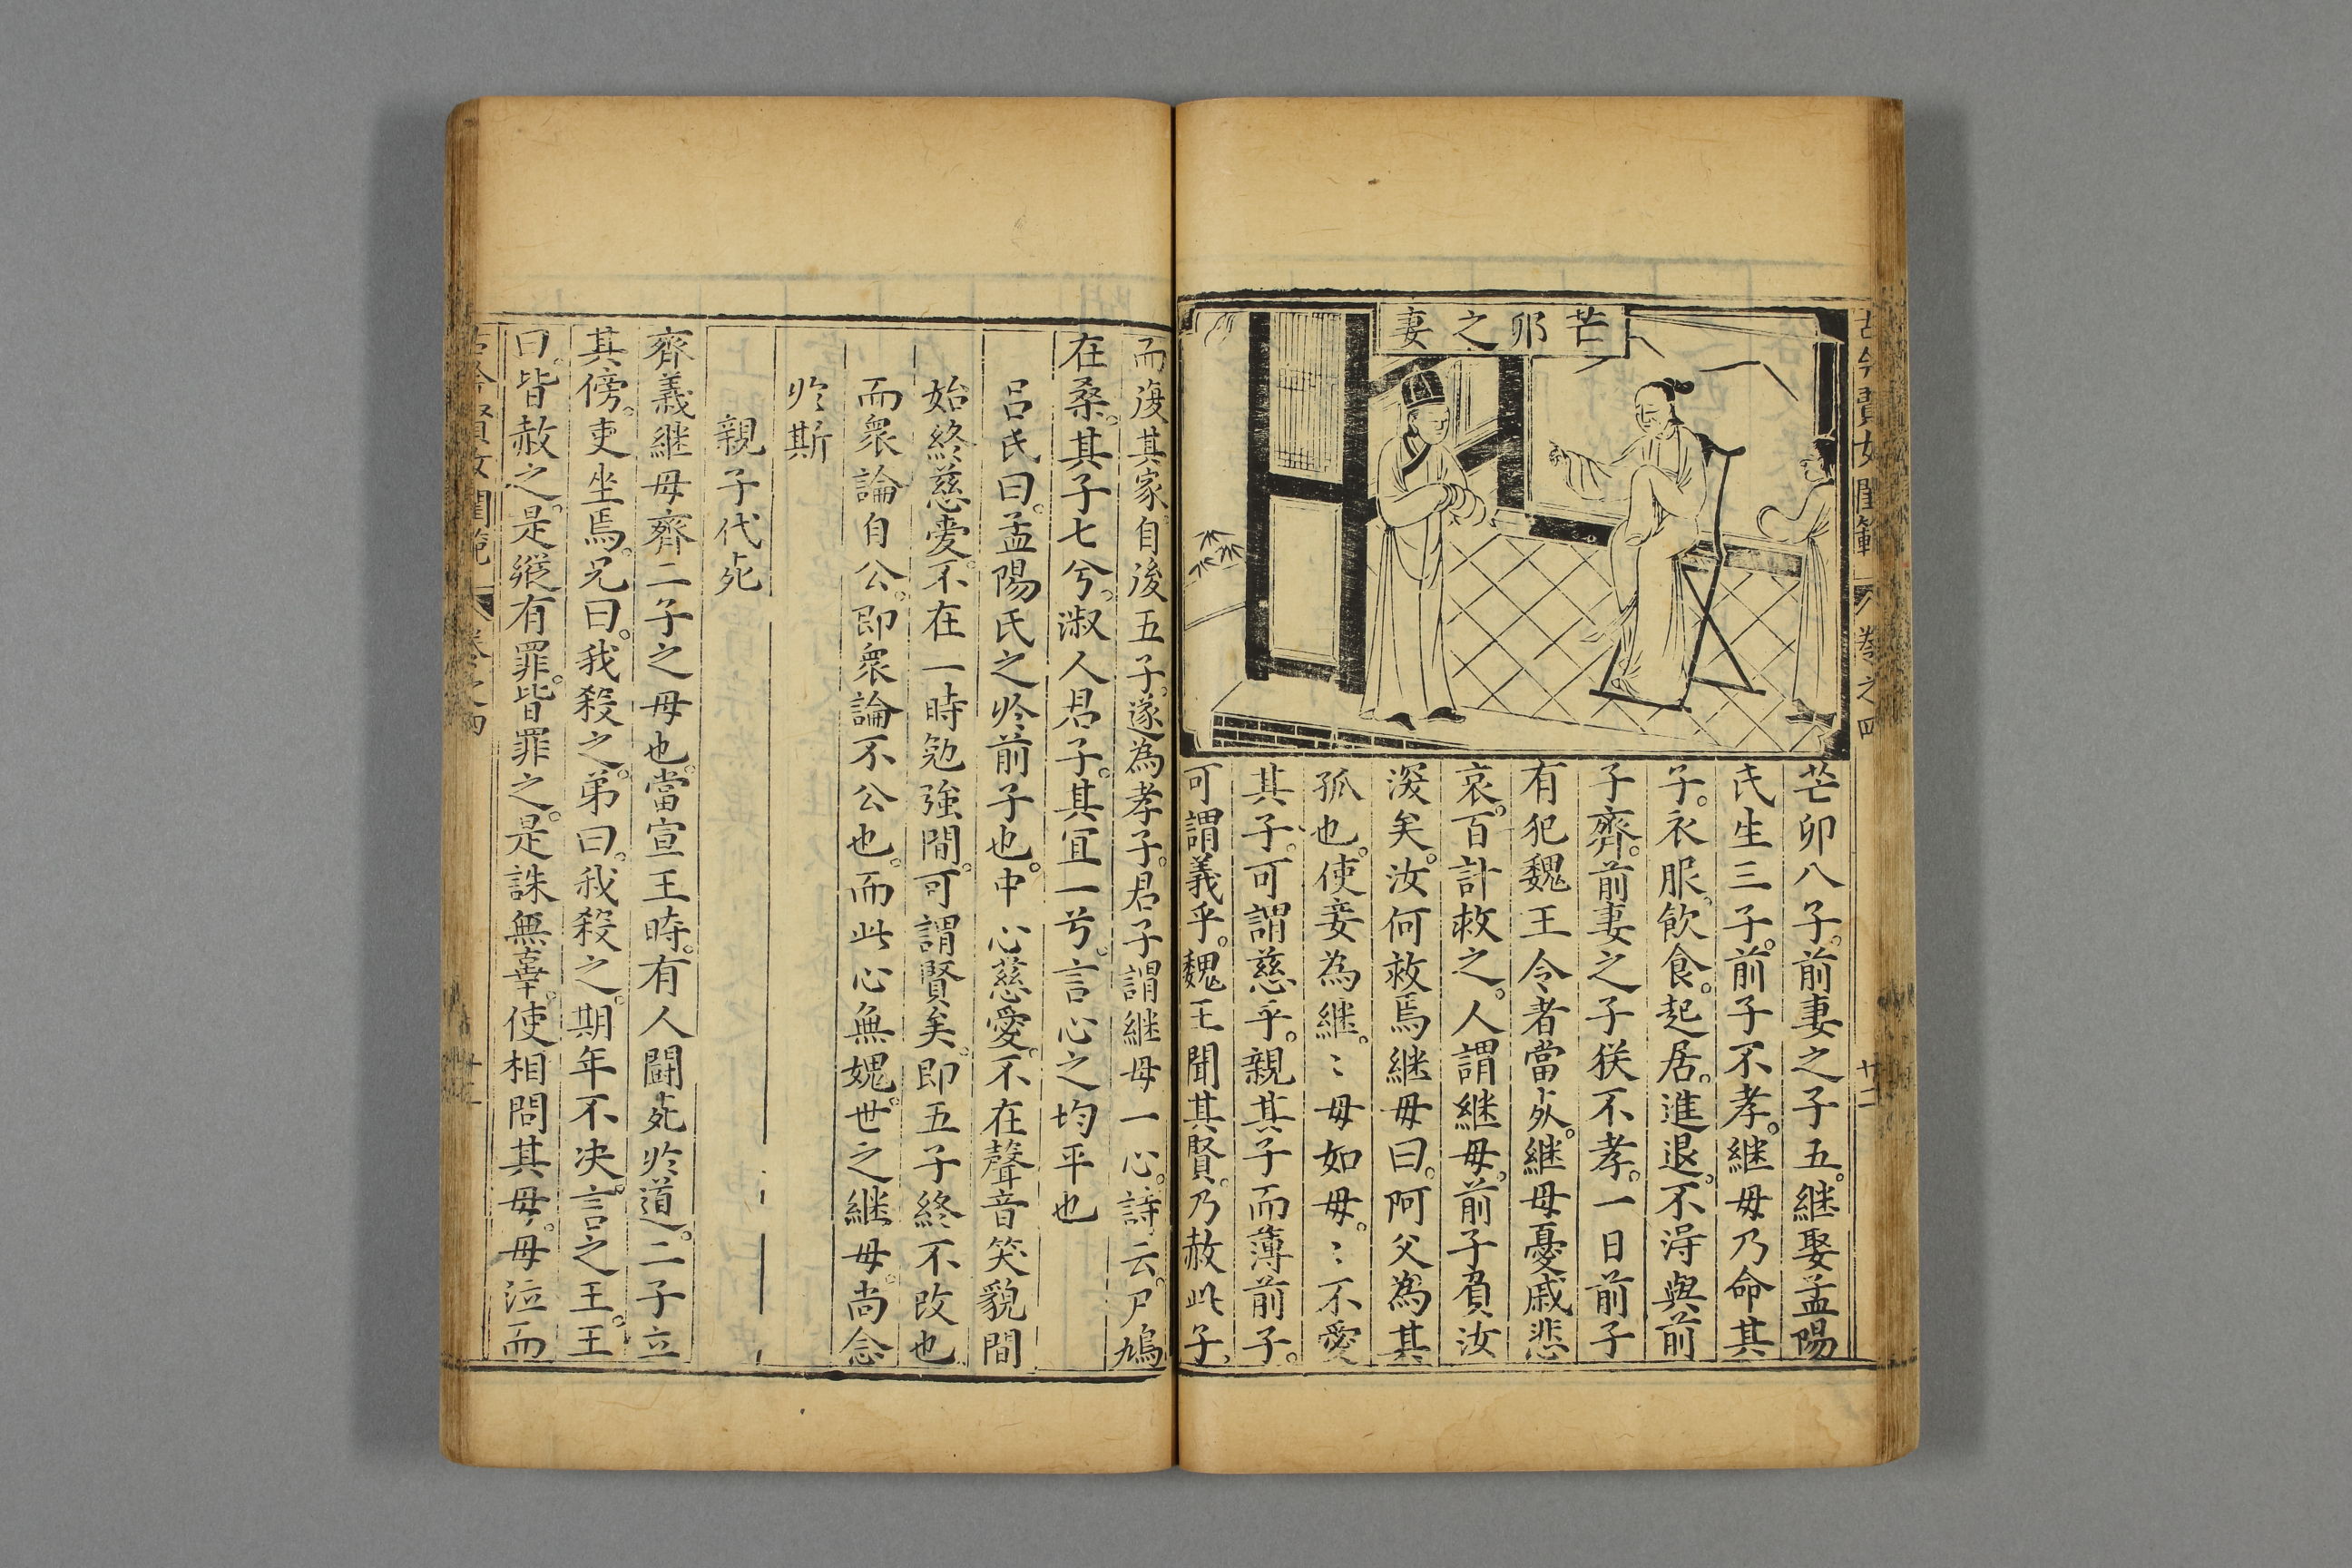 古今賢女閨範 卷之四 廿二
芒卯之妻
芒卯八子。前妻之子五。継娶孟陽
氏生三子。前子不孝。継母乃命其
子。衣服。飲食。起居。進退。不淂與前
子齊。前妻之子犹不孝。一日前子
有犯魏王令者當死。継母憂戚悲
哀。百計救之。人謂継母。前子負汝
深矣。汝何救焉継母曰。阿父為其
孤也。使妾為継。〻母如母。〻不愛
其子。可謂慈乎。親其子而薄前子。
可謂義乎。魏王聞其賢。乃赦此子、
而復其家。自後五子。遂為孝子。君子謂継母一心。詩云。尸鳩
在桑。其子七兮。淑人君子。其冝一兮。言心之均平也
呂氏曰。孟陽氏之扵前子也。中心慈愛。不在聲音笑貌間
始終慈愛。不在一時勉強間。可謂賢矣。即五子終不改也
而衆論自公。即衆論不公也。而此心無媿。世之継母。尚念
扵斯
親子代死
齊義継母齊二子之母也。當宣王時。有人鬪死扵道。二子立
其傍。吏坐焉。兄曰。我殺之。弟曰。我殺之。期年不决。言之王。王
曰。皆赦之。是縱有罪。皆罪之。是誅無辜。使相問其母。母泣而
古今賢女閨範 卷之四